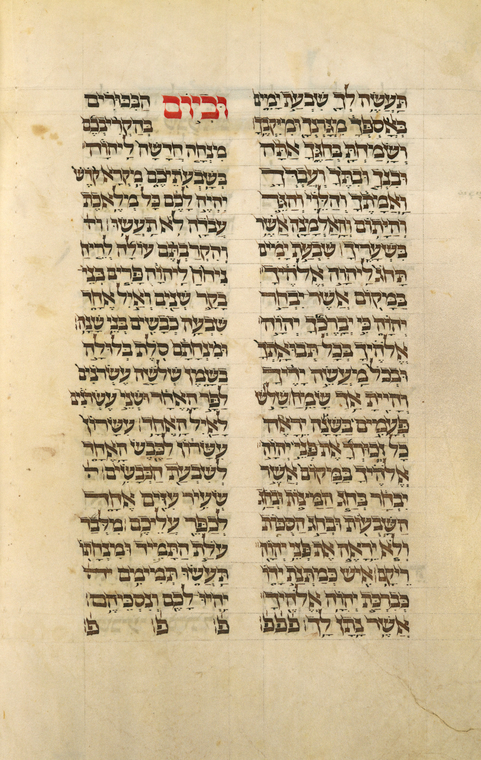 תעשה לך שבעת ימים
באספך מגרנך ומיקבך
ושמחת בחגך אתה
ובנך ובתך ועבדך
ואמתך והלוי והגר
והיתום והאלמנה אשר
בשעריך שבעת ימים
תחג ליהוה אלהיך
במקום אשר יבחר
יהוה כי יברכך יהוה
אלהיך בכל תבואתך
ובכל מעשה ידיך
והיית אך שמח שלש
פעמים בשנה יראה
כל זכורך את פני יהוה
אלהיך במקום אשר
יבחר בחג המצות ובחג
השבעות ובחג הסכות
ולא יראה את פני יהו
ריקם איש כמתנת ידו
כברכת יהוה אלהיך
אשר נתן לך פפפ
וביום הבכורים
בהקריבכם
מנחה חדשה ליהוה
בשבעתיכם מקרא קדש
יהיה לכם כל מלאכת
עבדה לא תעשו וה
והקרבתם עולה לריח
ניחח ליהוה פרים בני
בקר שנים ואיל אחד
שבעה כבשים בני שנה
ומנחתם סלת בלולה
בשמן שלשה עשרונים
לפר האחד ושני עשרונים
לאיל האחד עשרון
עשרון לכבש האחד
לשבעת הכבשים
שעיר עזים אחד
לכפר עליכם מלבד
עלת התמיד ומנחתו
תעשו תמימים יהי
יהיו לכם ונסכיהם
פ פ פ